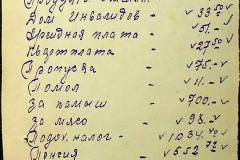 Дом Инвалидов - √ 33-50
Аренднад плата - √ 51.-
Квартплата √ 27-50
Пропуска - √ 75.-
Помол - √ 11.-
За камыш - √ 700.-
За мясо √ 98.-
Подох. налог - √ 1034-40
Пенсия √ 552-72